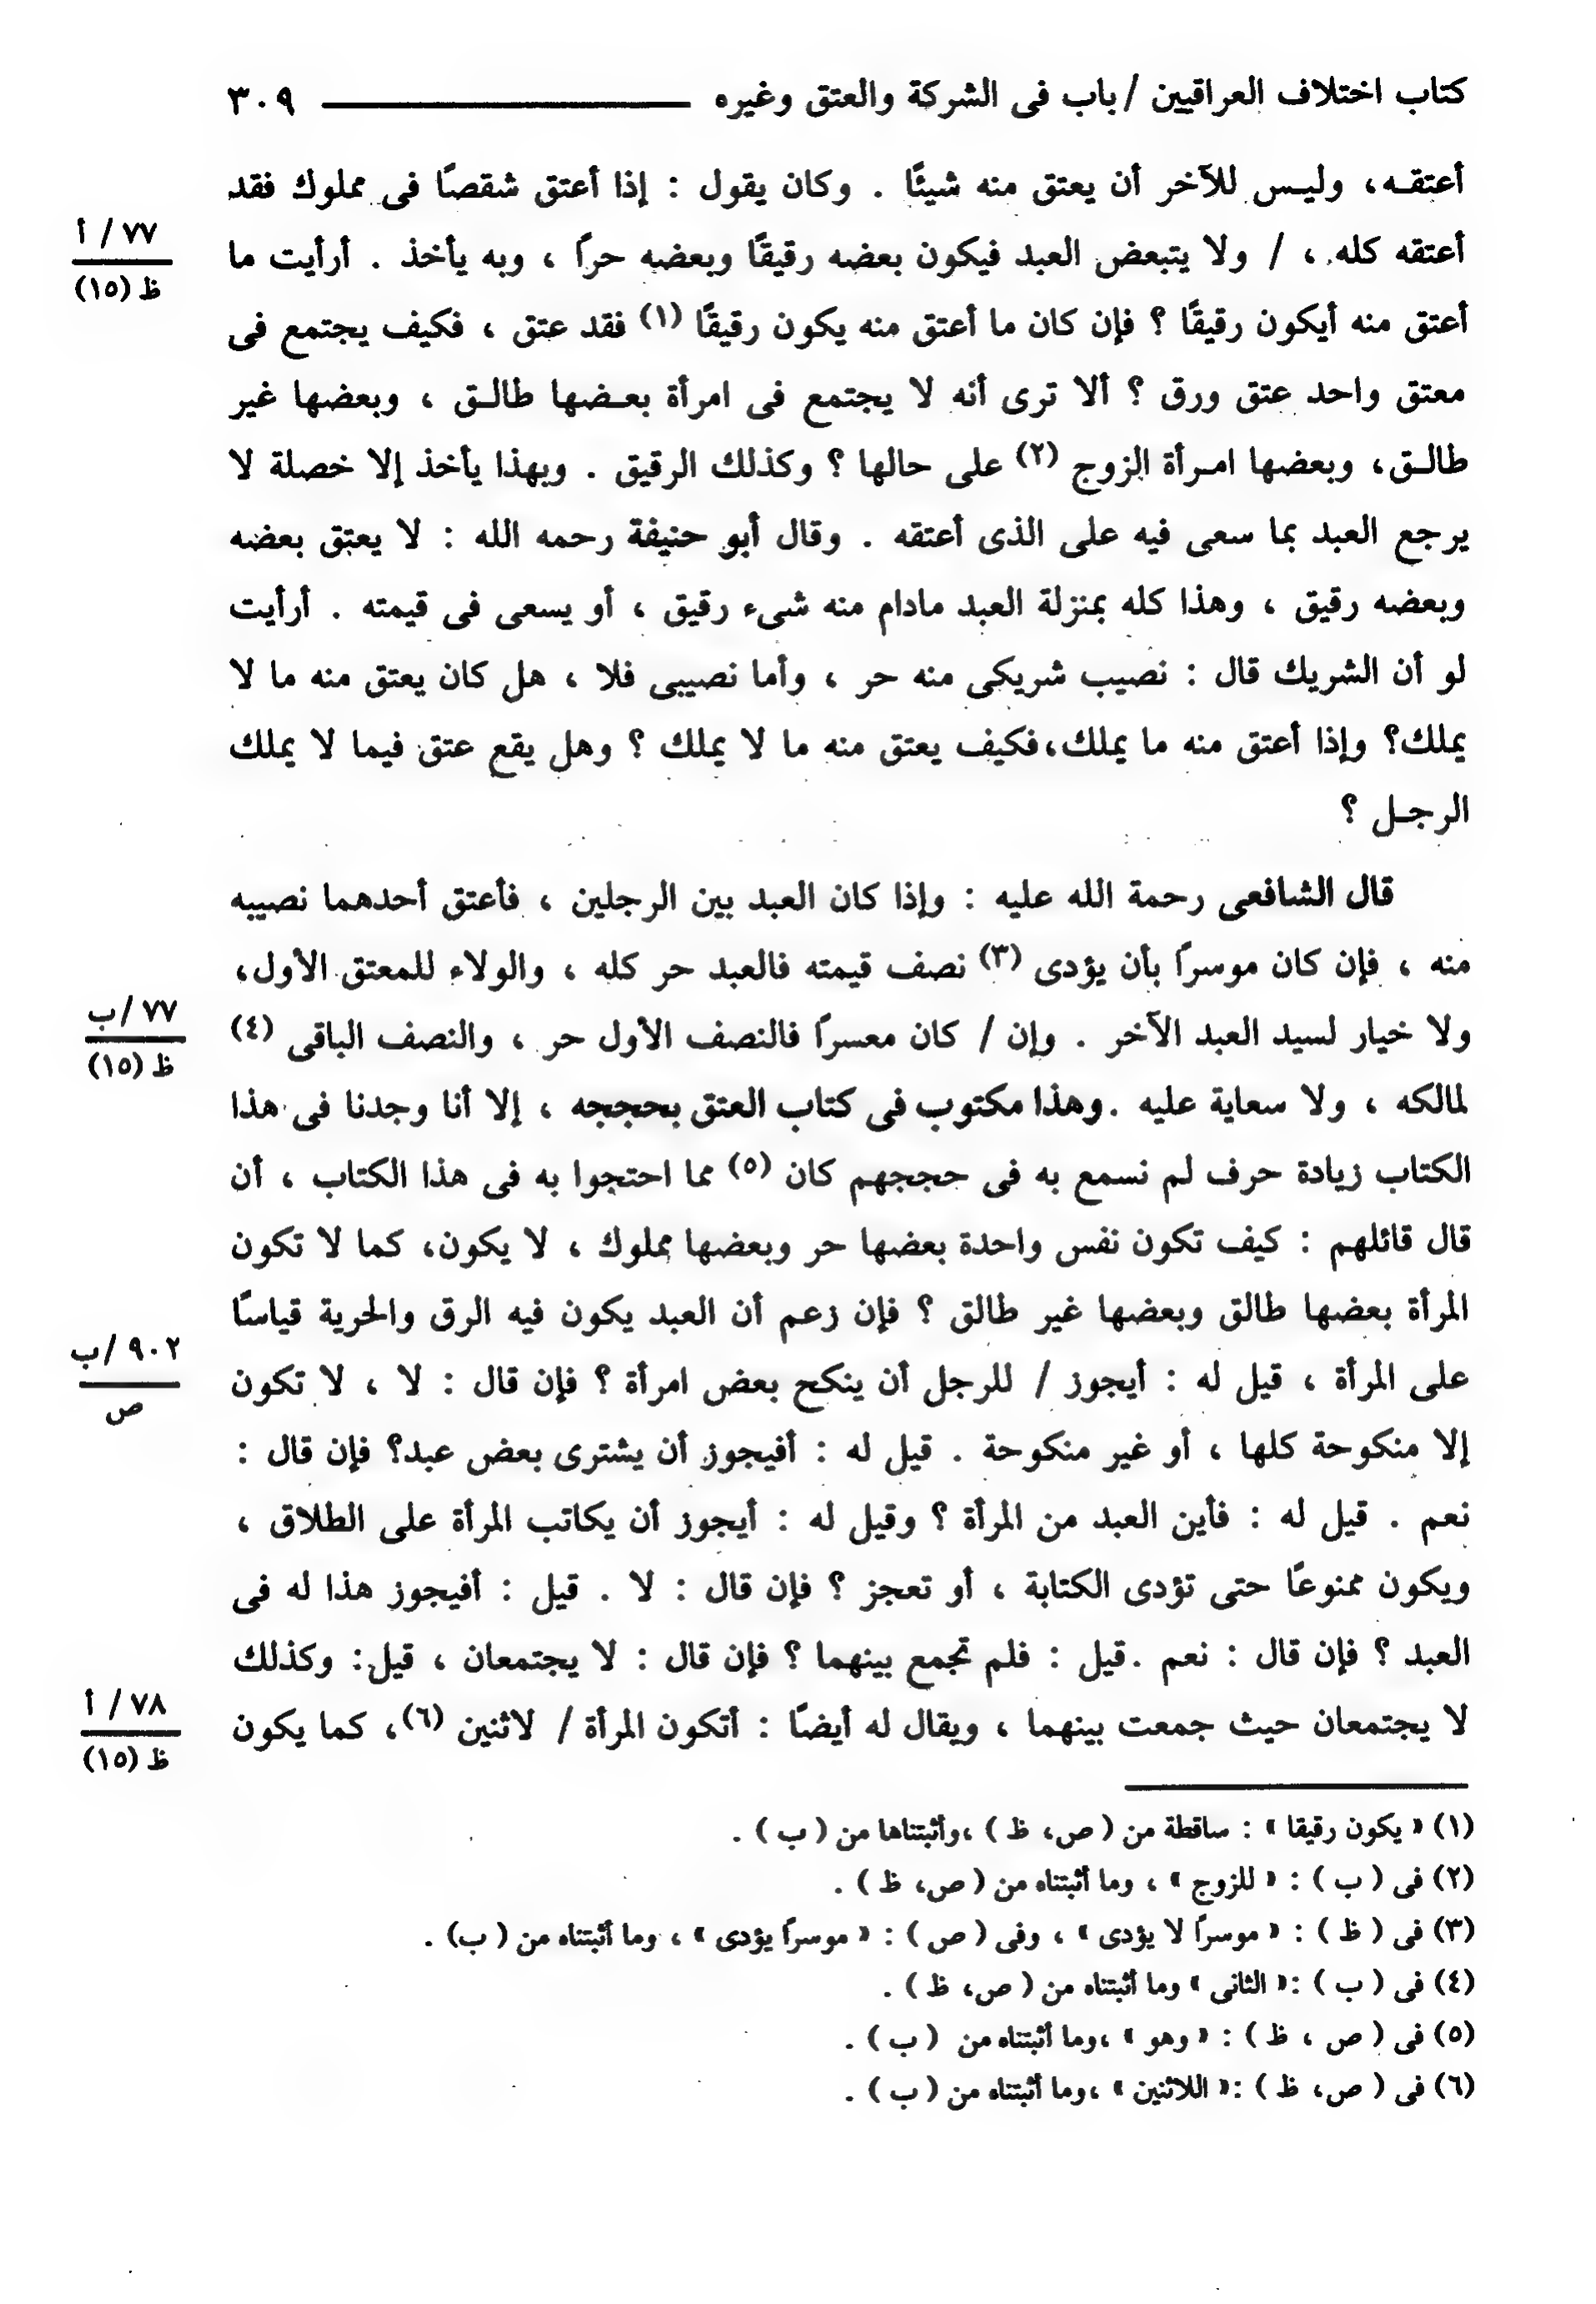 كتاب اختلاف العراقيين / باب فى الشركة والعتق وغيره ــــــــــــــ ٣٠٩
أعتقـه، وليـس للآخر أن يعتق منه شيئًا . وكان يقول : إذا أعتق شقصًا فى مملوك فقد
٧٧ / أ
ظ (١٥)
أعتقه كله ، / ولا يتبعض العبد فيكون بعضه رقيقًا وبعضه حراً ، وبه يأخذ . أرأيت ما
أعتق منه أيكون رقيقًا ؟ فإن كان ما أعتق منه يكون رقيقًا (١) فقد عتق ، فكيف يجتمع فى
معتق واحد عتق ورق ؟ ألا ترى أنه لا يجتمع فى امرأة بعـضها طالـق ، وبعضها غير
طالـق، وبعضها امـرأة الزوج (٢) على حالها ؟ وكذلك الرقيق . وبهذا يأخذ إلا خصلة لا
يرجع العبد بما سعى فيه على الذى أعتقه . وقال أبو حنيفة رحمه الله : لا يعتق بعضه
وبعضه رقيق ، وهذا كله بمنزلة العبد مادام منه شىء رقيق ، أو يسعى فى قيمته . أرأيت
لو أن الشريك قال : نصيب شريكى منه حر ، وأما نصيبى فلا ، هل كان يعتق منه ما لا
يملك؟ وإذا أعتق منه ما يملك،فكيف يعتق منه ما لا يملك ؟ وهل يقع عتق فيما لا يملك
الرجـل ؟
قال الشافعى رحمة الله عليه : وإذا كان العبد بين الرجلين ، فأعتق أحدهما نصيبه
منه ، فإن كان موسراً بأن يؤدى (٣) نصف قيمته فالعبد حر كله ، والولاء للمعتق الأول،
٧٧ /ب
ظ (١٥)
ولا خيار لسيد العبد الآخر . وإن / كان معسراً فالنصف الأول حر ، والنصف الباقى (٤)
لمالكه ، ولا سعاية عليه .وهذا مكتوب فى كتاب العتق بحججه ، إلا أنا وجدنا فى هذا
الكتاب زيادة حرف لم نسمع به فى حججهم كان (٥) مما احتجوا به فى هذا الكتاب ، أن
قال قائلهم : كيف تكون نفس واحدة بعضها حر وبعضها مملوك ، لا يكون، كما لا تكون
المرأة بعضها طالق وبعضها غير طالق ؟ فإن زعم أن العبد يكون فيه الرق والحرية قياسًا
٩٠٢ /ب
ص
على المرأة ، قيل له : أيجوز / للرجل أن ينكح بعض امرأة ؟ فإن قال : لا ، لا تكون
إلا منكوحة كلها ، أو غير منكوحة . قيل له : أفيجوز أن يشترى بعض عبد؟ فإن قال :
نعم . قيل له : فأين العبد من المرأة ؟ وقيل له : أيجوز أن يكاتب المرأة على الطلاق ،
ويكون ممنوعًا حتى تؤدى الكتابة ، أو تعجز ؟ فإن قال : لا . قيل : أفيجوز هذا له فى
العبد ؟ فإن قال : نعم .قيل : فلم تجمع بينهما ؟ فإن قال : لا يجتمعان ، قيل: وكذلك
٧٨ / أ
ظ (١٥)
لا يجتمعان حيث جمعت بينهما ، ويقال له أيضًا : أتكون المرأة / لاثنين (٦)، كما يكون
(١) « يكون رقيقا » : ساقطة من ( ص، ظ ) ،وأثبتناها من ( ب ) .
(٢) فى ( ب ) : « للزوج » ، وما أثبتناه من ( ص، ظ ) .
(٣) فى ( ظ ) : « موسراً لا يؤدى » ، وفى ( ص ) : « موسراً يؤدى » ، وما أثبتناه من ( ب) .
(٤) فى ( ب ) :« الثانى » وما أثبتناه من ( ص، ظ ) .
(٥) فى ( ص ، ظ ) : « وهو » ،وما أثبتناه من ( ب ) .
(٦) فى ( ص، ظ ) :« اللاثنين » ،وما أثبتناه من ( ب ) .